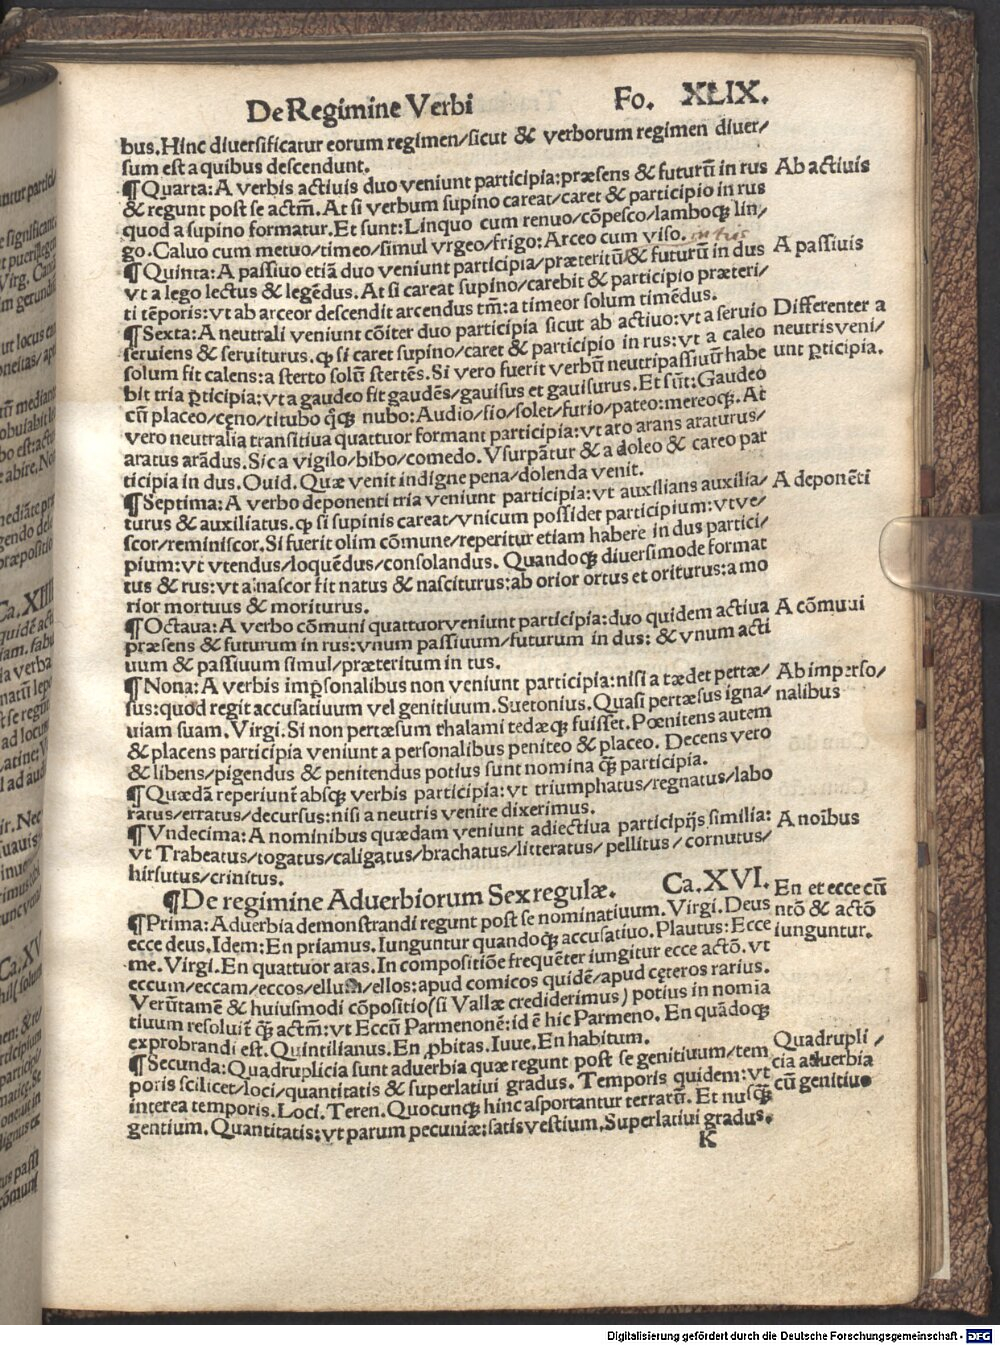 De Regimine Verbi Fo. XLIX.
bus. Hinc diuersificatur eorum regimen/sicut & verborum regimen diuer/
sum est a quibus descendunt.
¶ Quarta: A verbis actiuis duo veniunt participia: præsens & futurū in rus
Ab actiuis
& regunt post se actm̄. At si verbum supino careat/caret & participio in rus
quod a supino formatur. Et sunt: Linquo cum renuo/cōpesco/lamboqꝫ lin/
go. Caluo cum metuo/timeo/simul vrgeo/frigo: Arceo cum viso.
¶ Quinta: A passiuo etiā duo veniunt participia/præteritū & futurū in dus
A passiuis
vt a lego lectus & legēdus. At si careat supino/carebit & participio præteri/
ti tēporis: vt ab arceor descendit arcendus tm̄: a timeor solum timēdus.
¶ Sexta: A neutrali veniunt cōiter duo participia sicut ab actiuo: vt a seruio
Differenter a
seruiens & seruiturus. ꝙ si caret supino/caret & participio in rus: vt a caleo
neutris veni/
solum fit calens: a sterto solū stertēs. Si vero fuerit verbū neutripassiuū habe
unt ꝑticipia.
bit tria ꝑticipia: vt a gaudeo fit gaudēs/gauisus et gauisurus. Et sūt: Gaudeo
cū placeo/cęno/titubo q̄qꝫ nubo: Audio/fio/solet/furio/pateo: mereoqꝫ. At
vero neutralia transitiua quattuor formant participia: vt aro arans araturus/
aratus arādus. Sic a vigilo/bibo/comedo. Vsurpātur & a doleo & careo par
ticipia in dus. Ouid. Quæ venit indigne pena/dolenda venit.
¶ Septima: A verbo deponenti tria veniunt participia: vt auxilians auxilia/
A deponēti
turus & auxiliatus. ꝙ si supinis careat/vnicum possidet participium: vt ve/
scor/reminiscor. Si fuerit olim cōmune/reperitur etiam habere in dus partici/
pium: vt vtendus/loquēdus/consolandus. Quandoqꝫ diuersimode format
tus & rus: vt a nascor fit natus & nasciturus: ab orior ortus et oriturus: a mo
rior mortuus & moriturus.
¶ Octaua: A verbo cōmuni quattuor veniunt participia: duo quidem actiua
A cōmuni
præsens & futurum in rus: vnum passiuum/futurum in dus: & vnum acti
uum & passiuum simul/præteritum in tus.
¶ Nona: A verbis imꝑsonalibus non veniunt participia: nisi a tædet pertæ/
Ab imperso/
sus: quod regit accusatiuum vel genitiuum. Suetonius. Quasi pertæsus igna/
nalibus
uiam suam. Virgi. Si non pertæsum thalami tedæqꝫ fuisset. Pœnitens autem
& placens participia veniunt a personalibus peniteo & placeo. Decens vero
& libens/pigendus & penitendus potius sunt nomina q̄ꝫ participia.
¶ Quædā reperiunt̄ absqꝫ verbis participia: vt triumphatus/regnatus/labo
ratus/erratus/decursus: nisi a neutris venire dixerimus.
¶ Vndecima: A nominibus quædam veniunt adiectiua participijs similia:
A noībus
vt Trabeatus/togatus/caligatus/brachatus/litteratus/pellitus/cornutus/
hirsutus/crinitus.
¶ De regimine Aduerbiorum Sex regulæ. Ca. XVI.
¶ Prima: Aduerbia demonstrandi regunt post se nominatiuum. Virgi. Deus
En et ecce cū
ecce deus. Idem: En priamus. Iunguntur quandoqꝫ accusatiuo. Plautus: Ecce
ntō & actō
me. Virgi. En quattuor aras. In compositiōe frequēter iungitur ecce actō. vt
iunguntur.
eccum/eccam/eccos/ellum/ellos: apud comicos quidē/apud cęteros rarius.
Verūtamē & huiusmodi cōpositio (si Vallæ crediderimus) potius in nomia
tiuum resoluit̄ q̄ꝫ actm̄: vt Eccū Parmenonē: id ē hic Parmeno. En quādoqꝫ
exprobrandi est. Quintilianus. En ꝓbitas. Iuue. En habitum.
¶ Secunda: Quadruplicia sunt aduerbia quæ regunt post se genitiuum/tem
Quadrupli/
poris scilicet/loci/quantitatis & superlatiui gradus. Temporis quidem: vt
cia aduerbia
interea temporis. Loci. Teren. Quocunqꝫ hinc asportantur terrarū. Et nusq̄ꝫ
cū genitiuo
gentium. Quantitatis: vt parum pecuniæ: satis vestium. Superlatiui gradus.
K
Digitalisierung gefördert durch die Deutsche Forschungsgemeinschaft - DFG